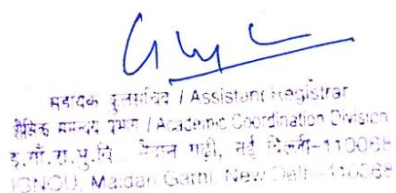 सहायक कुलसचिव / Assistant Registrar
शैक्षिक समन्वय प्रभाग / Academic Coordination Division
इ.गाँ.रा.मु.वि., मैदान गढ़ी, नई दिल्ली-110068
IGNOU, Maidan Garhi, New Delhi-110068